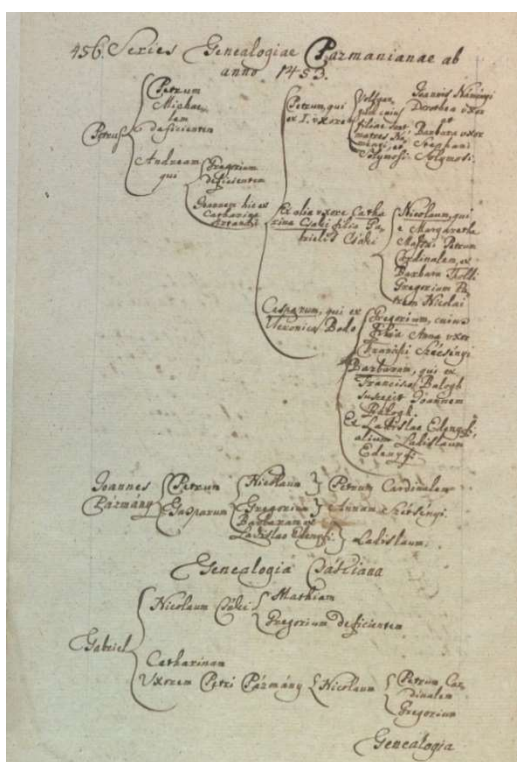 456. Series Genealogiae Pazmanianae ab
anno 1453.
Petrus
Petrum
Michae-
lem
deficientem
Andream
qui
Gregorium
deficientem
Joannem hic ex
Catharina
Petrum, qui
ex I. uxore
Volfgan-
gum cuius
filiae sunt
matres
et
Solymosi
Joannis
Dorothea uxor
et
Barbara uxor
Stephani
Solymosi.
Ex alia uxore Catha
rina Csaki filia Ga-
brielis Csáki
Nicolaum, qui
e Margaretha
Massai Petrum
Cardinalem, ex
Barbara Tholdi
Gregorium Pa-
trem Nicolai
Casparum, qui ex
Veronica Bodo
Gregorium, cuius
filia Anna uxor
Francisci Szécsingi
Barbaram, qui ex
Francisco Balogh
suscepit Joannem
Balogh.
Ex Ladislao Edenyfi,
alium Ladislaum
Edenyfi
Joannes
Pázmány
Petrum
Gasparum
Nicolaum
Gregorium
Barbaram ex
Ladislao Edenyfi
Petrum Cardinalem
Annam Szétsingi.
Ladislaum.
Genealogia Csákiana
Gabriel
Nicolaum Csáki
Mathiam
Gregorium deficientem
Catharinam
Uxorem Petri Pázmány
Nicolaum
Petrum Car-
dinalem
Gregorium
Genealogia